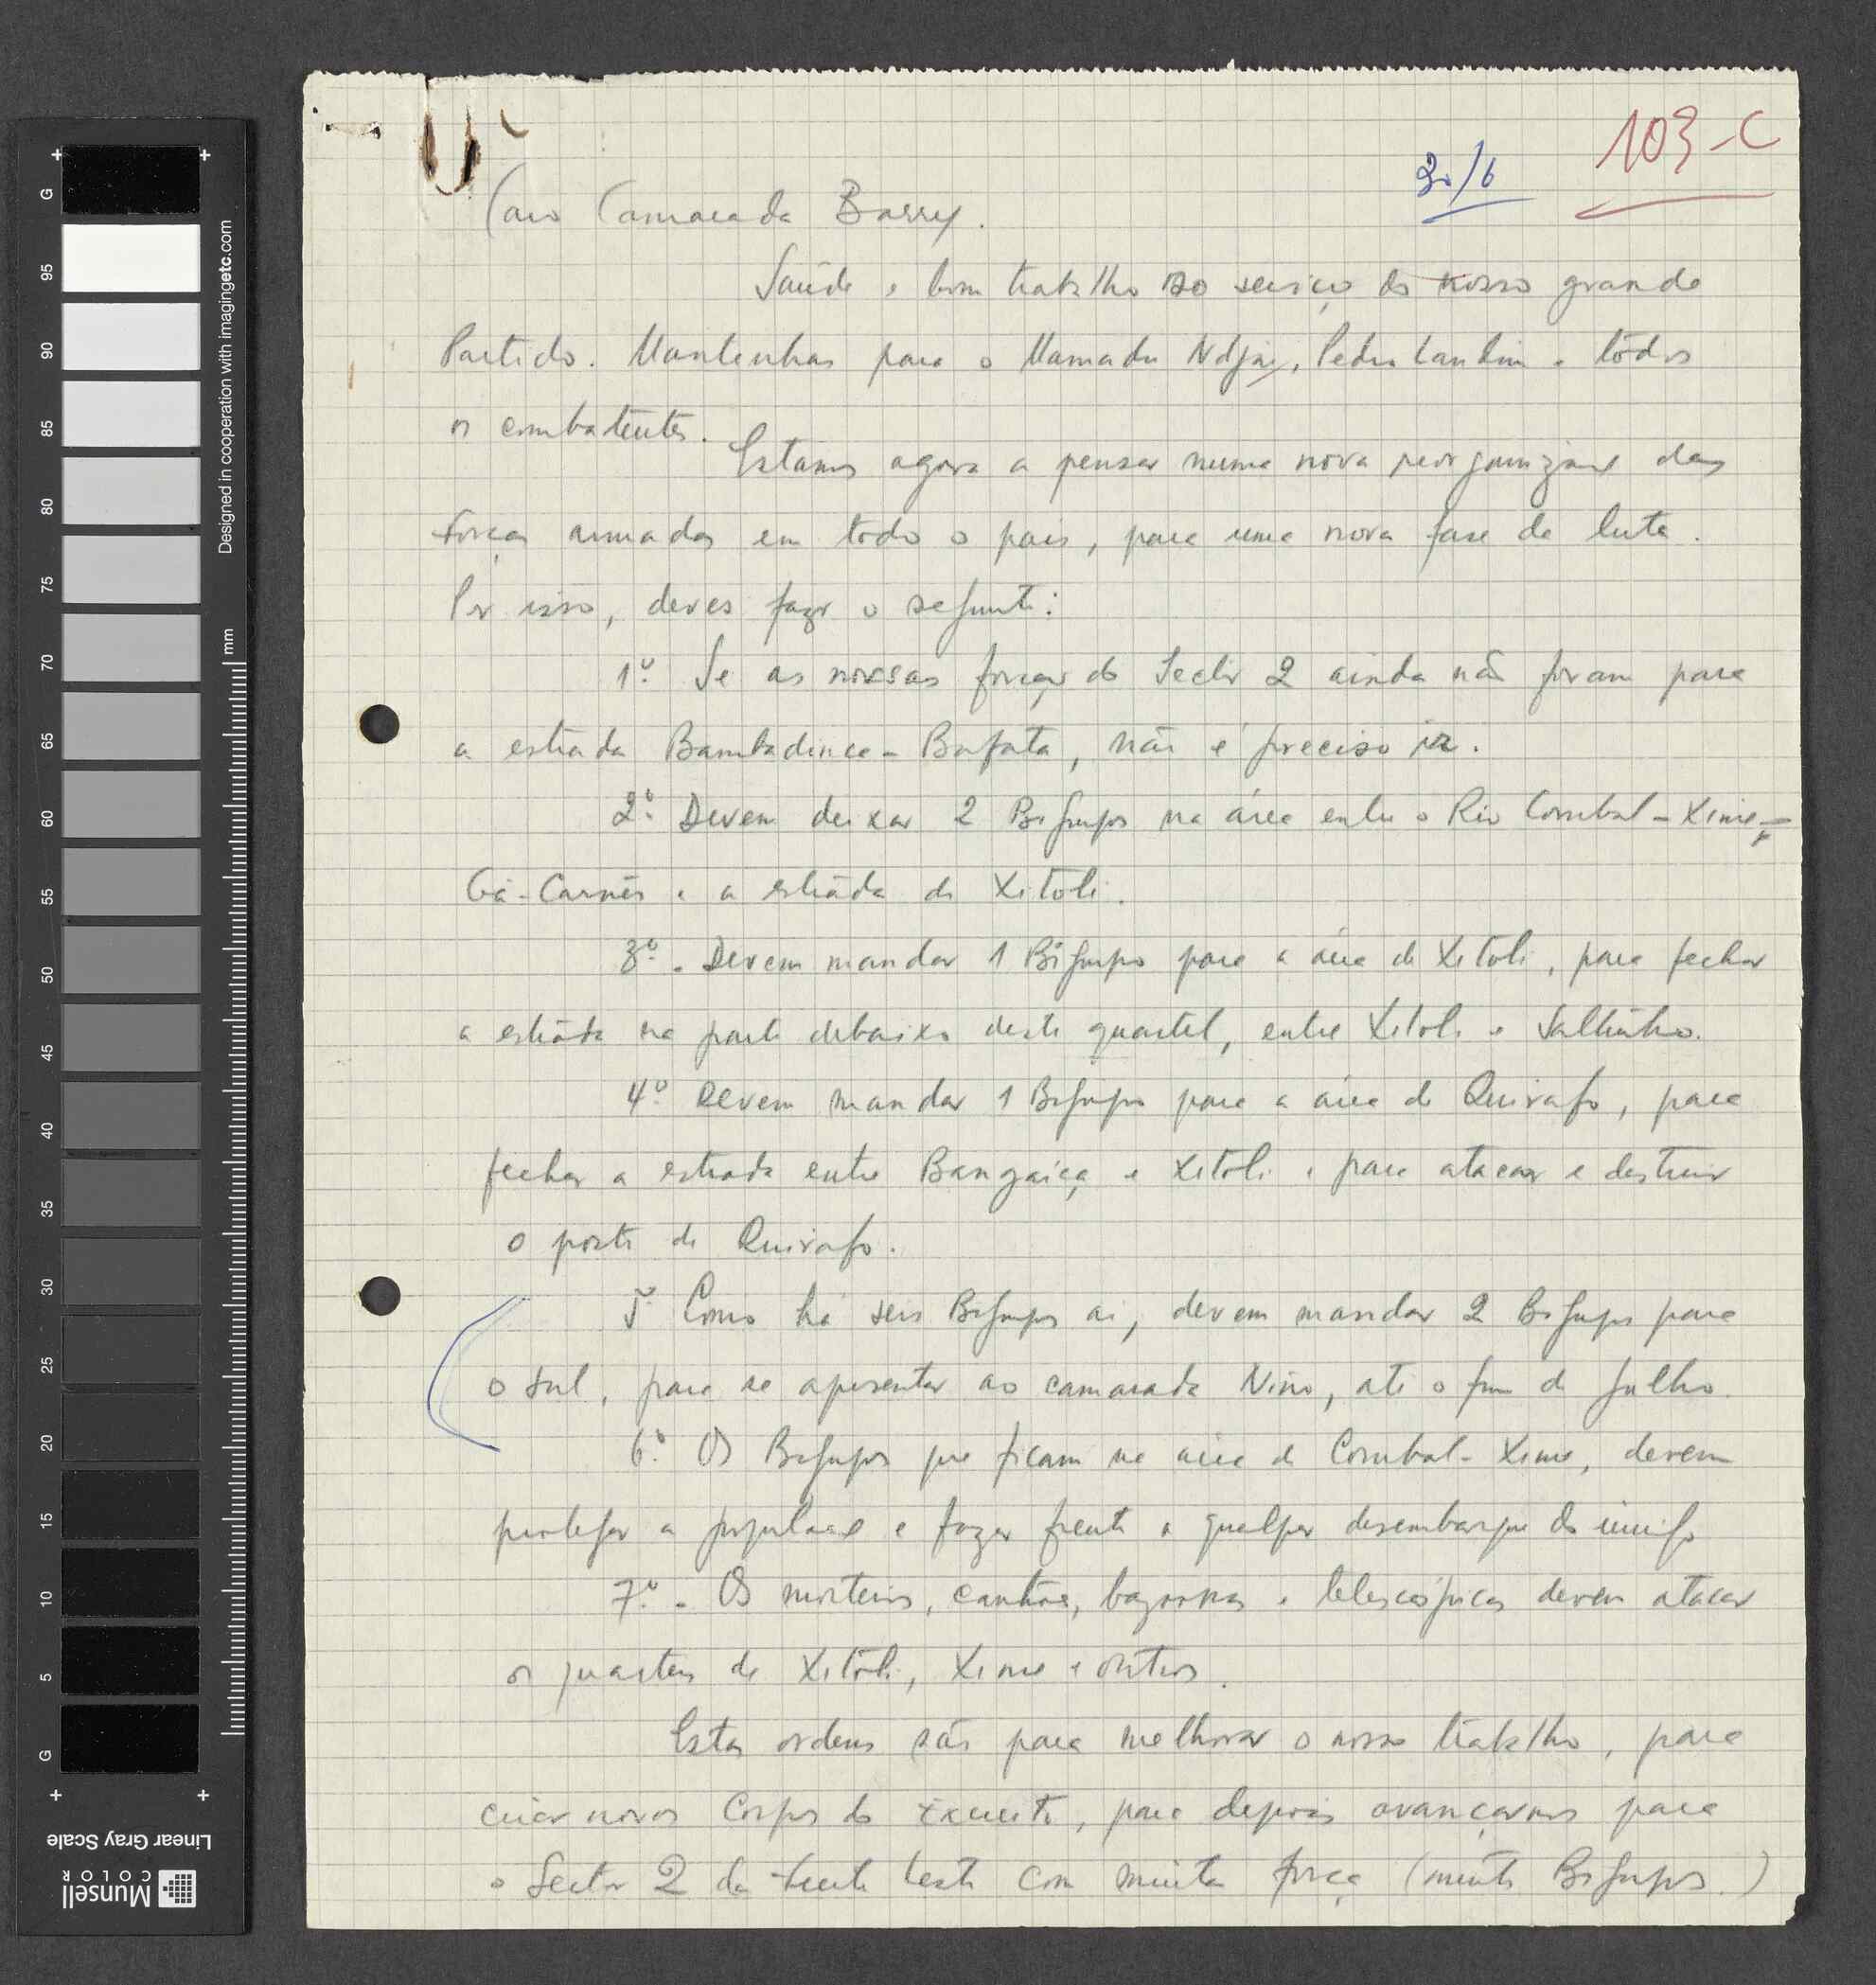 103-C
30/6
Caro Camarada Barry.
Saúde e bom trabalho ao serviço do nosso grande
Partido. Mantenhas para o Mamadu Ndjai, Pedro Landim e todos
os combatentes.
Estamos agora a pensar numa nova reorganização das
forças armadas em todo o país, para uma nova fase da luta.
Por isso, deves fazer o seguinte:
1º. Se as nossas forças do Sector 2 ainda não foram para
a estrada Bambadinca-Bafata, não é preciso ir.
2º. Devem deixar 2 Bigrupos na área entre o Rio Corubal-Xime,
Gã-Carnês e a estrada de Xitoli.
3º. Devem mandar 1 Bigrupo para a área de Xitoli, para fechar
a estrada na parte debaixo deste quartel, entre Xitoli e Saltinho.
4º. Devem mandar 1 Bigrupo para a área de Quirafo, para
fechar a estrada entre Bangaiça e Xitoli e para atacar e destruir
o posto de Quirafo.
5º. Como há seis Bigrupos aí, devem mandar 2 Bigrupos para
o Sul, para se apresentar ao camarada Nino, até o fim de Julho.
6º. Os Bigrupos que ficam na área de Corubal-Xime, devem
proteger a população e fazer frente a qualquer desembarque do inimigo
7º. Os morteiros, canhões, bazookas e telescópicas devem atacar
os quarteis de Xitoli, Xime e outros.
Estas ordens são para melhorar o nosso trabalho, para
criar novos Corpos do Exército, para depois avançarmos para
o Sector 2 da Frente Leste com muita força (muitos Bigrupos.)
Designed in cooperation with imagingetc.com
mm
G
95
90
85
80
75
70
65
60
55
50
45
40
35
30
25
20
15
10
5
G
Linear Gray Scale
Munsell
COLOR